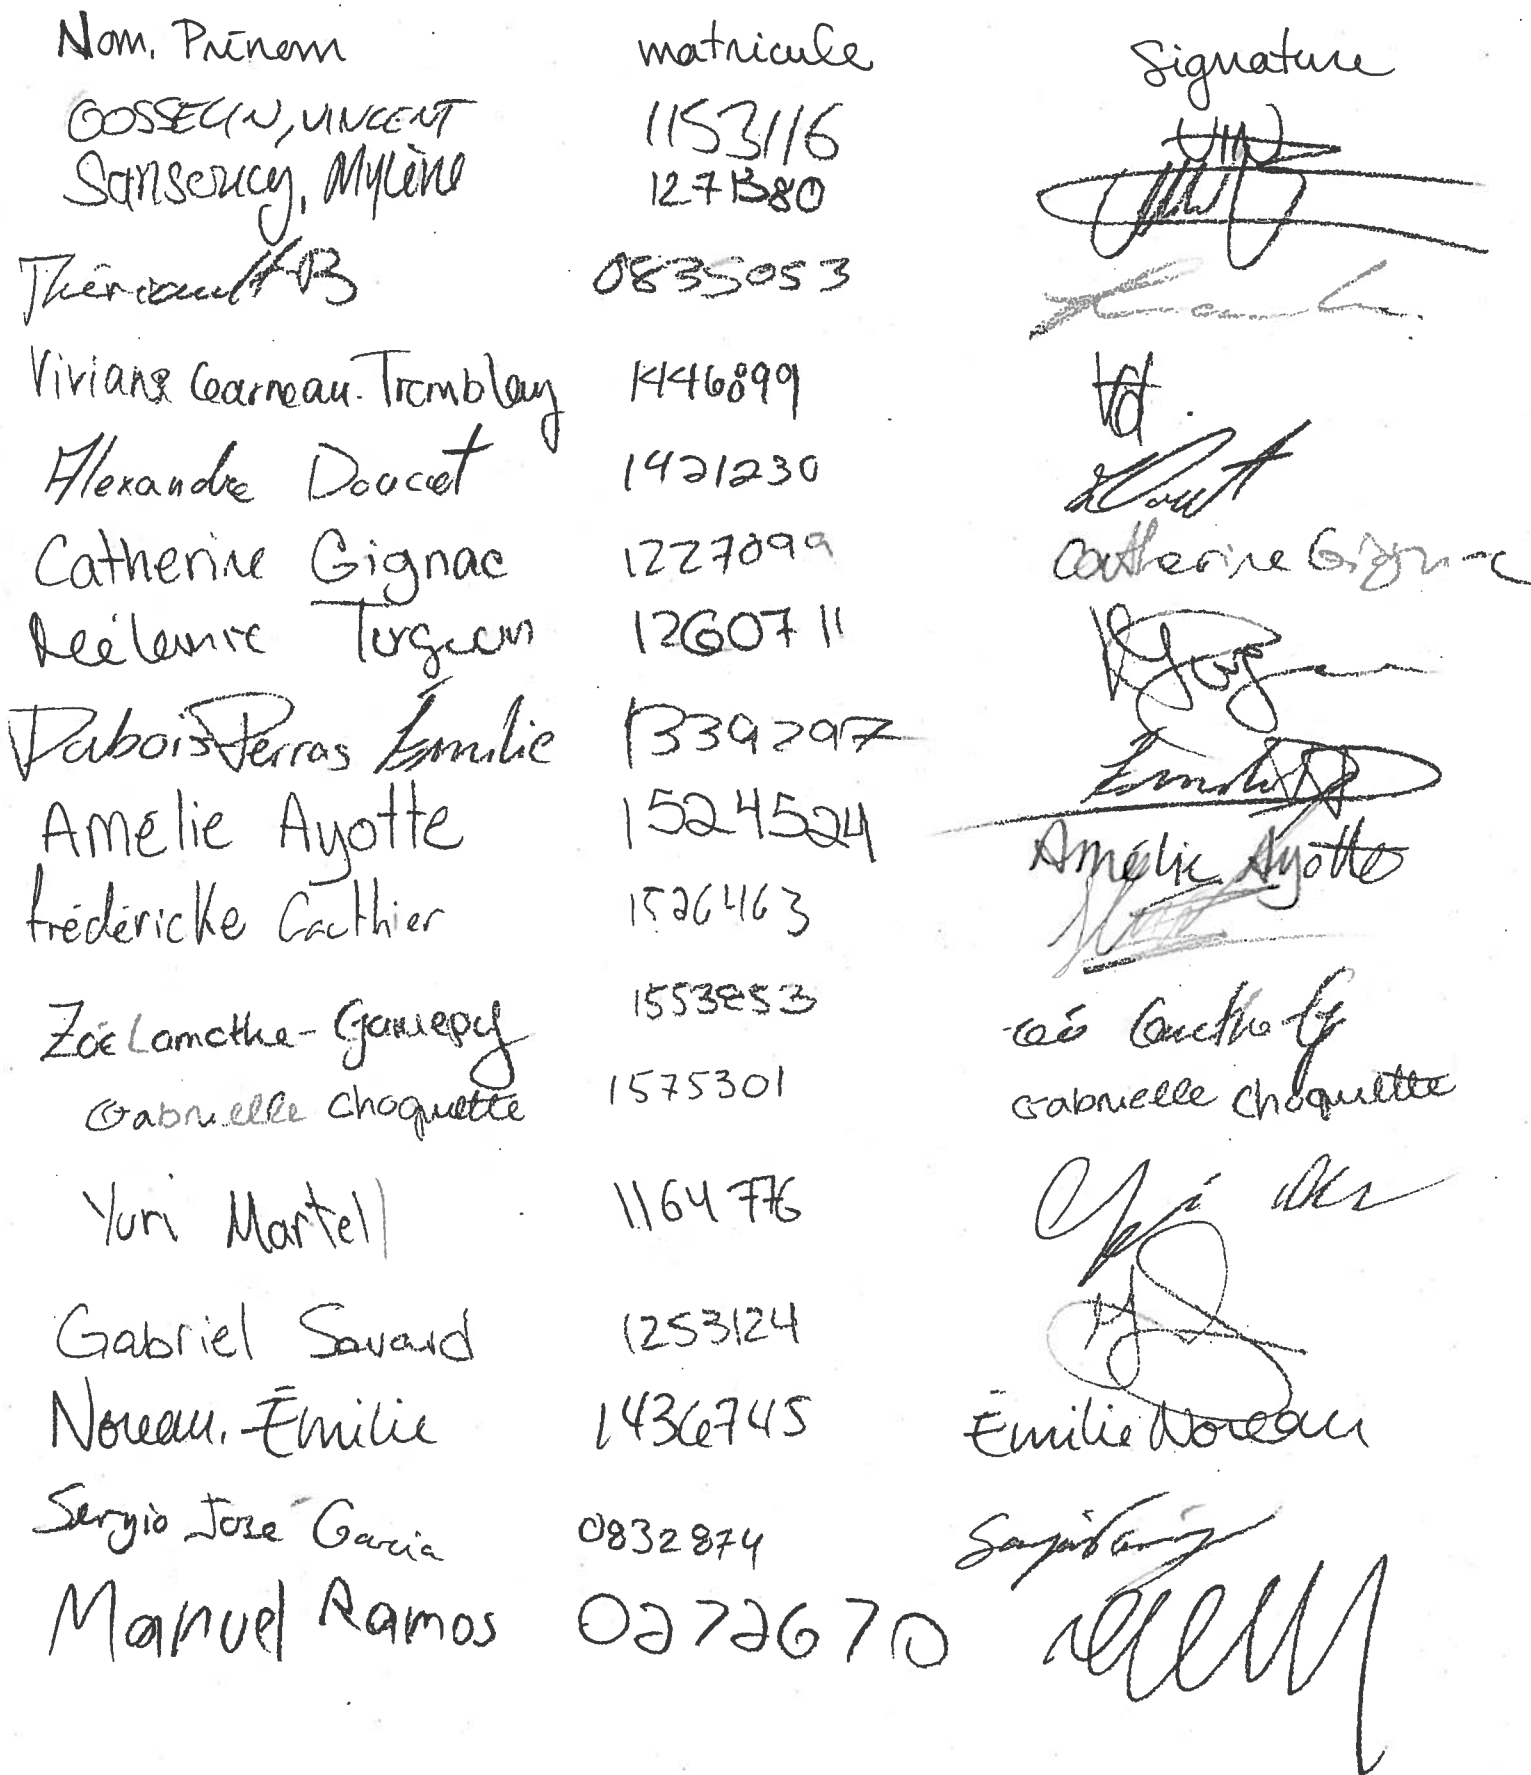 Nom, Prénom matricule Signature
GOSSELIN, VINCENT 1153116 VIN
Sansoucy, Mylène 1271380
Thériault B 0835053
Viviane Garneau-Tremblay 1446899
Alexandre Doucet 1421230
Catherine Gignac 1227099 Catherine Gignac
Mélanie Turgeon 1260711
Dubois-Perras Émilie 1339297
Amélie Ayotte 1524524 Amélie Ayotte
Frédéricke Gauthier 1526463
Zoé Lamothe-Gariepy 1553853
Gabrielle Choquette 1575301 Gabrielle Choquette
Yuri Martell 1164776
Gabriel Savard 1253124
Noreau, Émilie 1436745 Émilie Noreau
Sergio José Garcia 0832874
Manuel Ramos 0272670